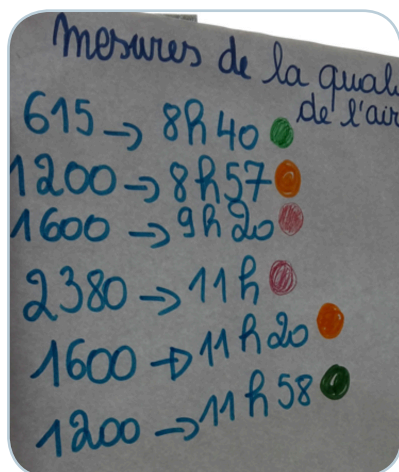 mesures de la
de l'air
615 → 8h40
1200 → 8h57
1600 → 9h20
2380 → 11h
1600 → 11h20
1200 → 11h58